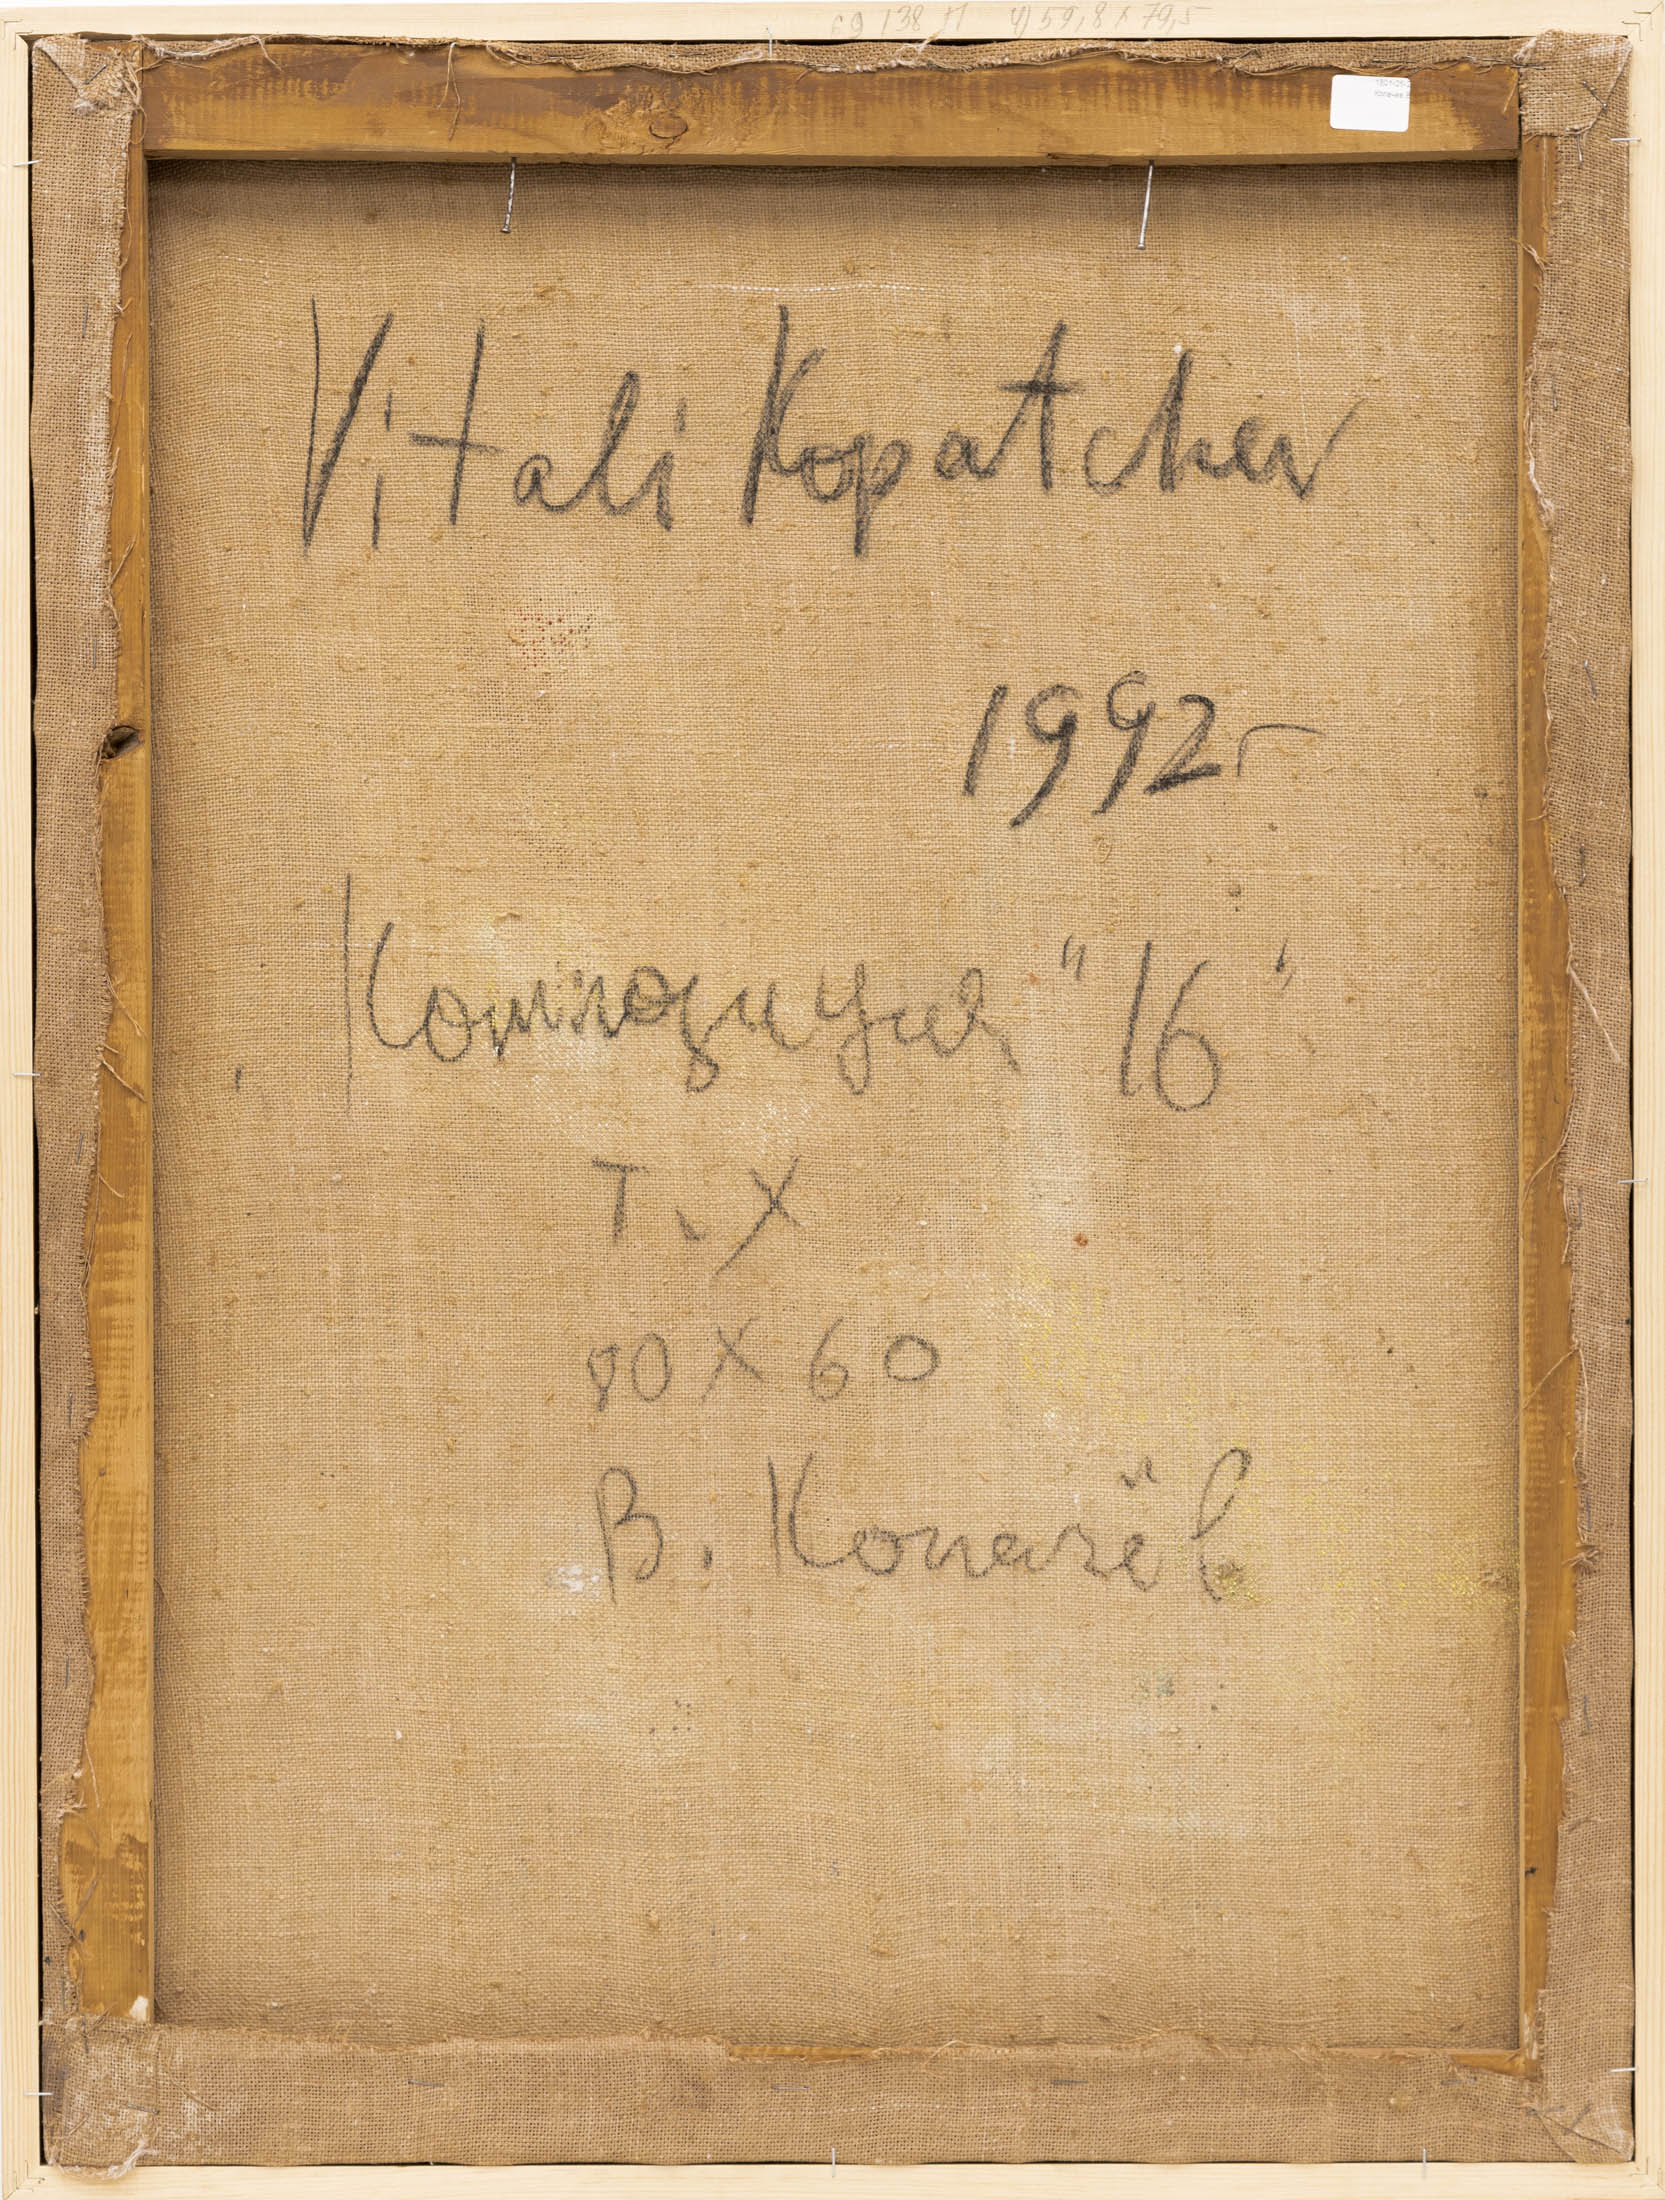 69 138 H 4) 59,8 x 79,5
Vitali Kopatchev
1992 г
Композиция "16"
Т. Х
80 X 60
В. Копачёв